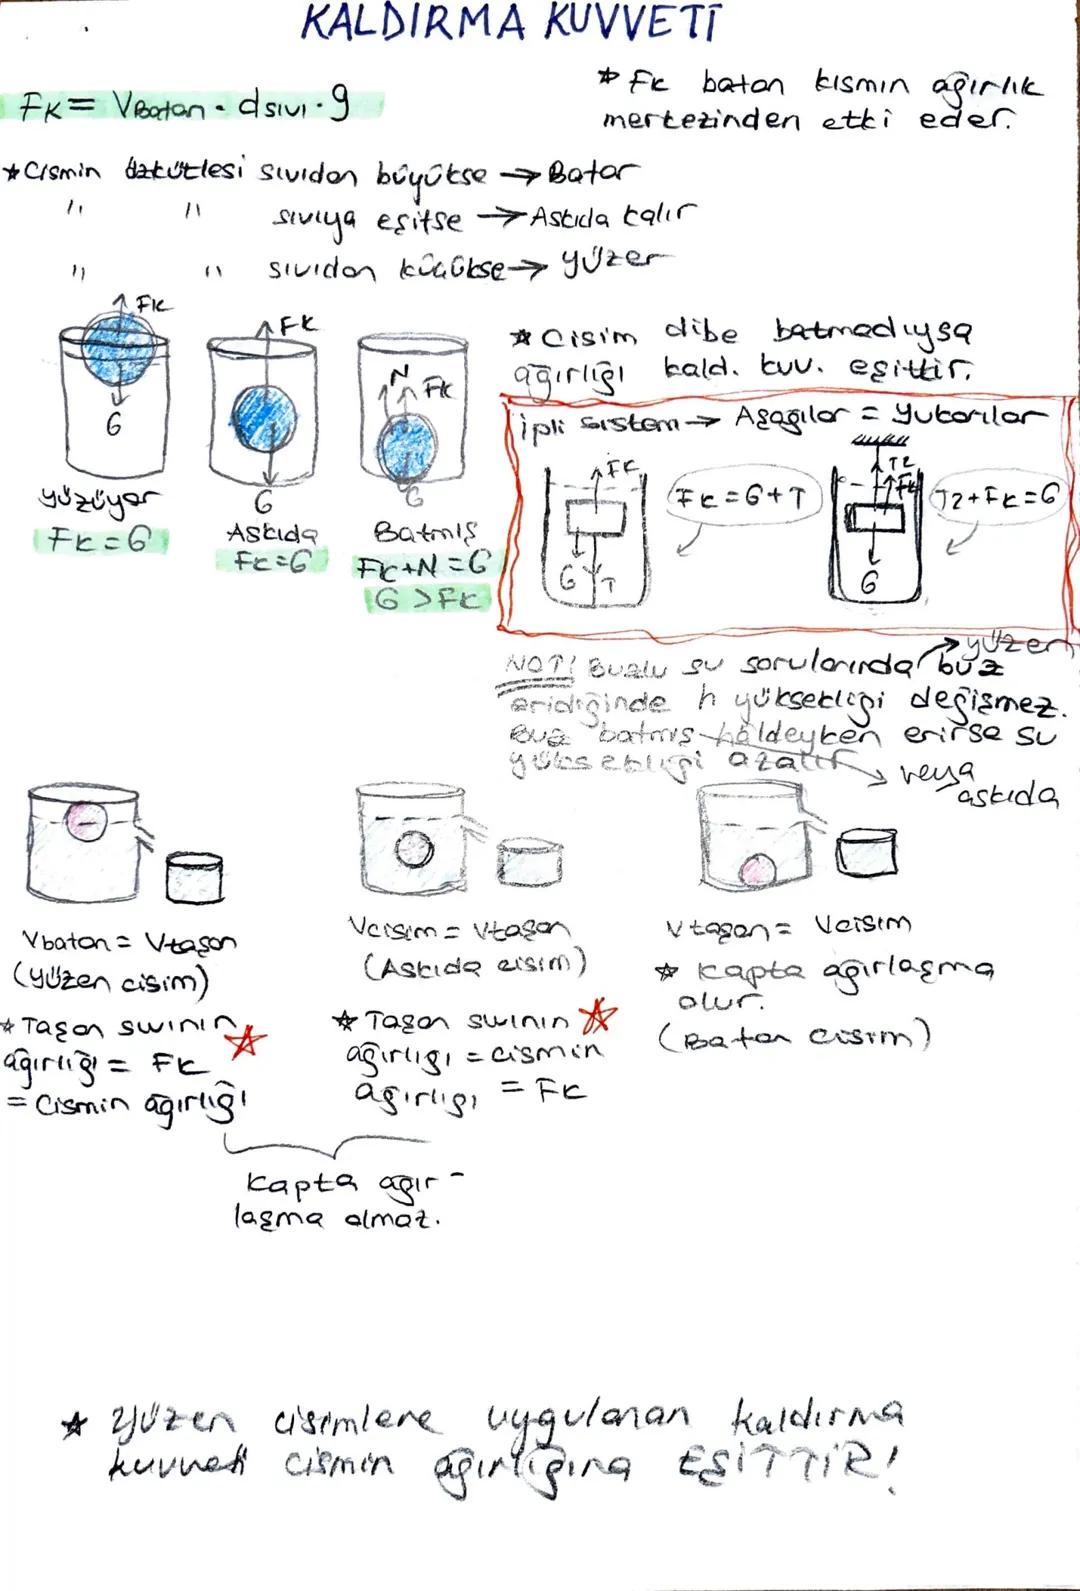 KALDIRMA KUVVETİ
FK = VBatan . dsıvı . g
* FK batan kısmın ağırlık
merkezinden etki eder.
* Cismin özkütlesi sıvıdan büyükse → Batar
" " sıvıya eşitse → Askıda kalır
" " sıvıdan küçükse → yüzer
FK
G
yüzüyor
FK = G
FK
G
Askıda
FK = G
N FK
G
Batmış
FK + N = G
G > FK
* Cisim dibe batmadıysa
ağırlığı kald. kuv. eşittir.
İpli sistem → Aşağılar = Yukarılar
FK
G T
FK = G + T
T2
FK
G
T2 + FK = G
→ yüzer
NOT! Buzlu su sorularında buz
eridiğinde h yüksekliği değişmez.
Buz batmış haldeyken erirse su
yüksekliği azalır
→ veya
askıda
Vbatan = Vtaşan
(yüzen cisim)
* Taşan sıvının
ağırlığı = FK
= Cismin ağırlığı
Vcisim = Vtaşan
(Askıda cisim)
* Taşan sıvının
ağırlığı = cismin
ağırlığı = FK
Kapta ağır-
laşma olmaz.
Vtaşan = Vcisim
* Kapta ağırlaşma
olur.
(Batan cisim)
* Yüzen cisimlere uygulanan kaldırma
kuvveti cismin ağırlığına EŞİTTİR!